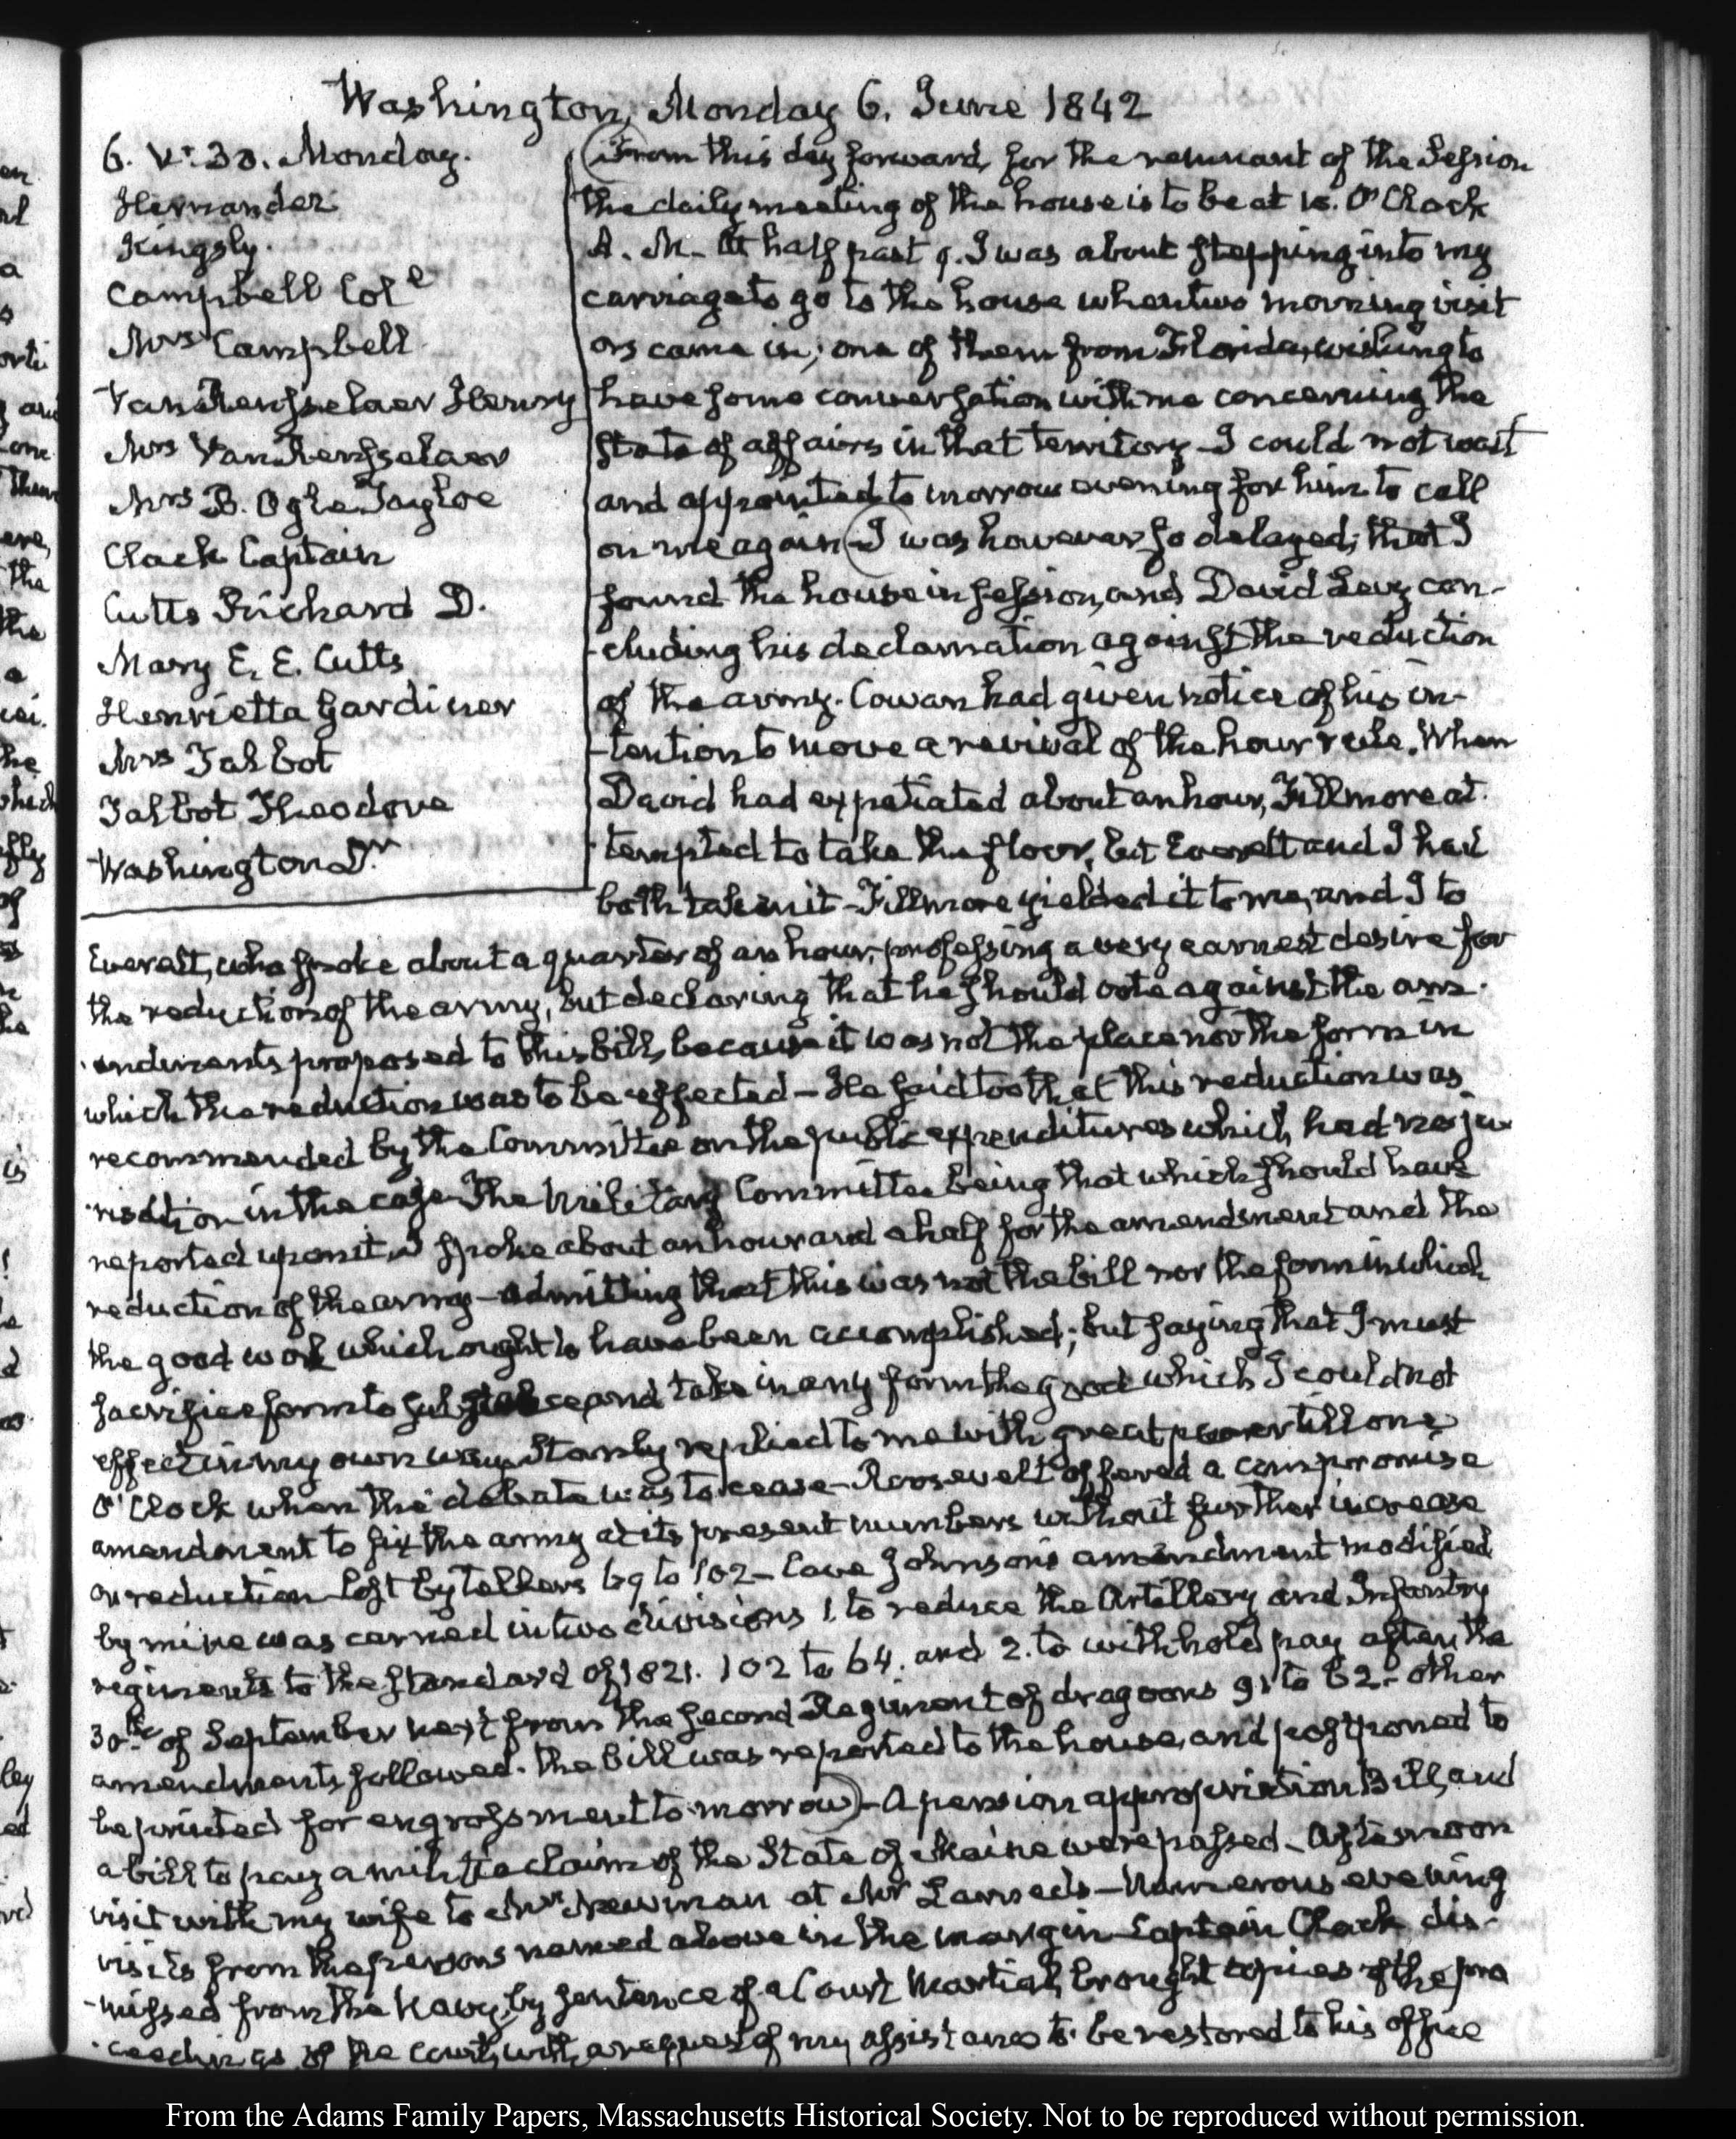 Washington, Monday 6. June 1842
6. V:30. Monday.
Hernandez
Kingsly.
Campbell Col.l
Mrs Campbell
Van Rensselaer Henry
Mrs Van Rensselaer
Mrs B. Ogle Tayloe
Clack Captain
Cutts Richard D.
Mary E. E. Cutts
Henrietta Gardiner
Mrs Talbot
Talbot Theodore
Washington Dr
From this day forward, for the remnant of the Session
the daily meeting of the house is to be at 10. O'Clock
A. M. At half past 9. I was about stepping into my
carriage to go to the house when two morning visit
ors came in; one of them from Florida, wishing to
have some conversation with me concerning the
State of affairs in that territory - I could not wait
and appointed to morrow evening for him to call
on me again - I was however so delayed, that I
found the house in session, and David Levy con-
-cluding his declamation against the reduction
of the army. Cowan had given notice of his in-
-tention to move a revival of the hour rule. When
David had expatiated about an hour, Fillmore at-
-tempted to take the floor, but Everett and I had
both taken it - Fillmore yielded it to me, and I to
Everett, who spoke about a quarter of an hour, professing a very earnest desire for
the reduction of the army, but declaring that he should vote against the am-
-endments proposed to this bill, because it was not the place nor the form in
which the reduction was to be effected - He said too that this reduction was
recommended by the Committee on the public expenditures which had no ju-
-risdiction in the case The Military Committee being that which should have
reported upon it. I spoke about an hour and a half for the amendment and the
reduction of the army - admitting that this was not the bill nor the form in which
the good work which ought to have been accomplished; but saying that I must
sacrifice form to substance and take in any form the good which I could not
effect in my own way. Stanly replied to me with great power till one
O'Clock when the debate was to cease - Roosevelt offered a compromise
amendment to fix the army at its present numbers without further increase
or reduction - lost by tellers 69 to 102 - Cave Johnson's amendment modified
by mine was carried in two divisions 1. to reduce the Artillery and Infantry
regiments to the standard of 1821. 102 to 64. and 2. to withhold pay after the
30th of September next from the second Regiment of dragoons 91 to 62 - other
amendments followed. the bill was reported to the house, and postponed to
be printed for engrossment to-morrow - A pension appropriation Bill, and
a bill to pay a militia claim of the State of Maine were passed - Afternoon
visit with my wife to Mrs Newman at Mr Larned's - Numerous evening
visits from the persons named above in the margin - Captain Clack dis-
-missed from the Navy, by sentence of a Court Martial, brought copies of the pro
-ceedings of the court, with a request of my assistance to be restored to his office
From the Adams Family Papers, Massachusetts Historical Society. Not to be reproduced without permission.